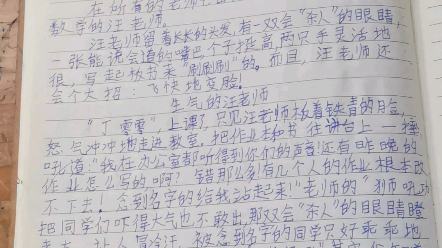 在所有的老师中
数学的汪老师。
汪老师留着长长的头发,有一双会“杀人”的眼睛,
一张能说会道的嘴巴,个子挺高,两只手灵活地
很,写起板书来“刷刷刷”的。而且,汪老师还
会个大招:飞快地变脸!
生气的汪老师
“丁零零”,上课了,只见汪老师板着铁青的脸,
怒气冲冲地走进教室,把作业本和书往讲台上一摔,
吼道:“我在办公室都听得到你们的声音!还有昨晚的
作业怎么写的啊?错那么多!有几个人的作业根本改
不下去!念到名字的给我站起来!”老师的“狮吼功”
把同学们吓得大气也不敢出,那双会“杀人”的眼睛瞪
让人冒冷汗。被念到名字的同学只好乖乖地